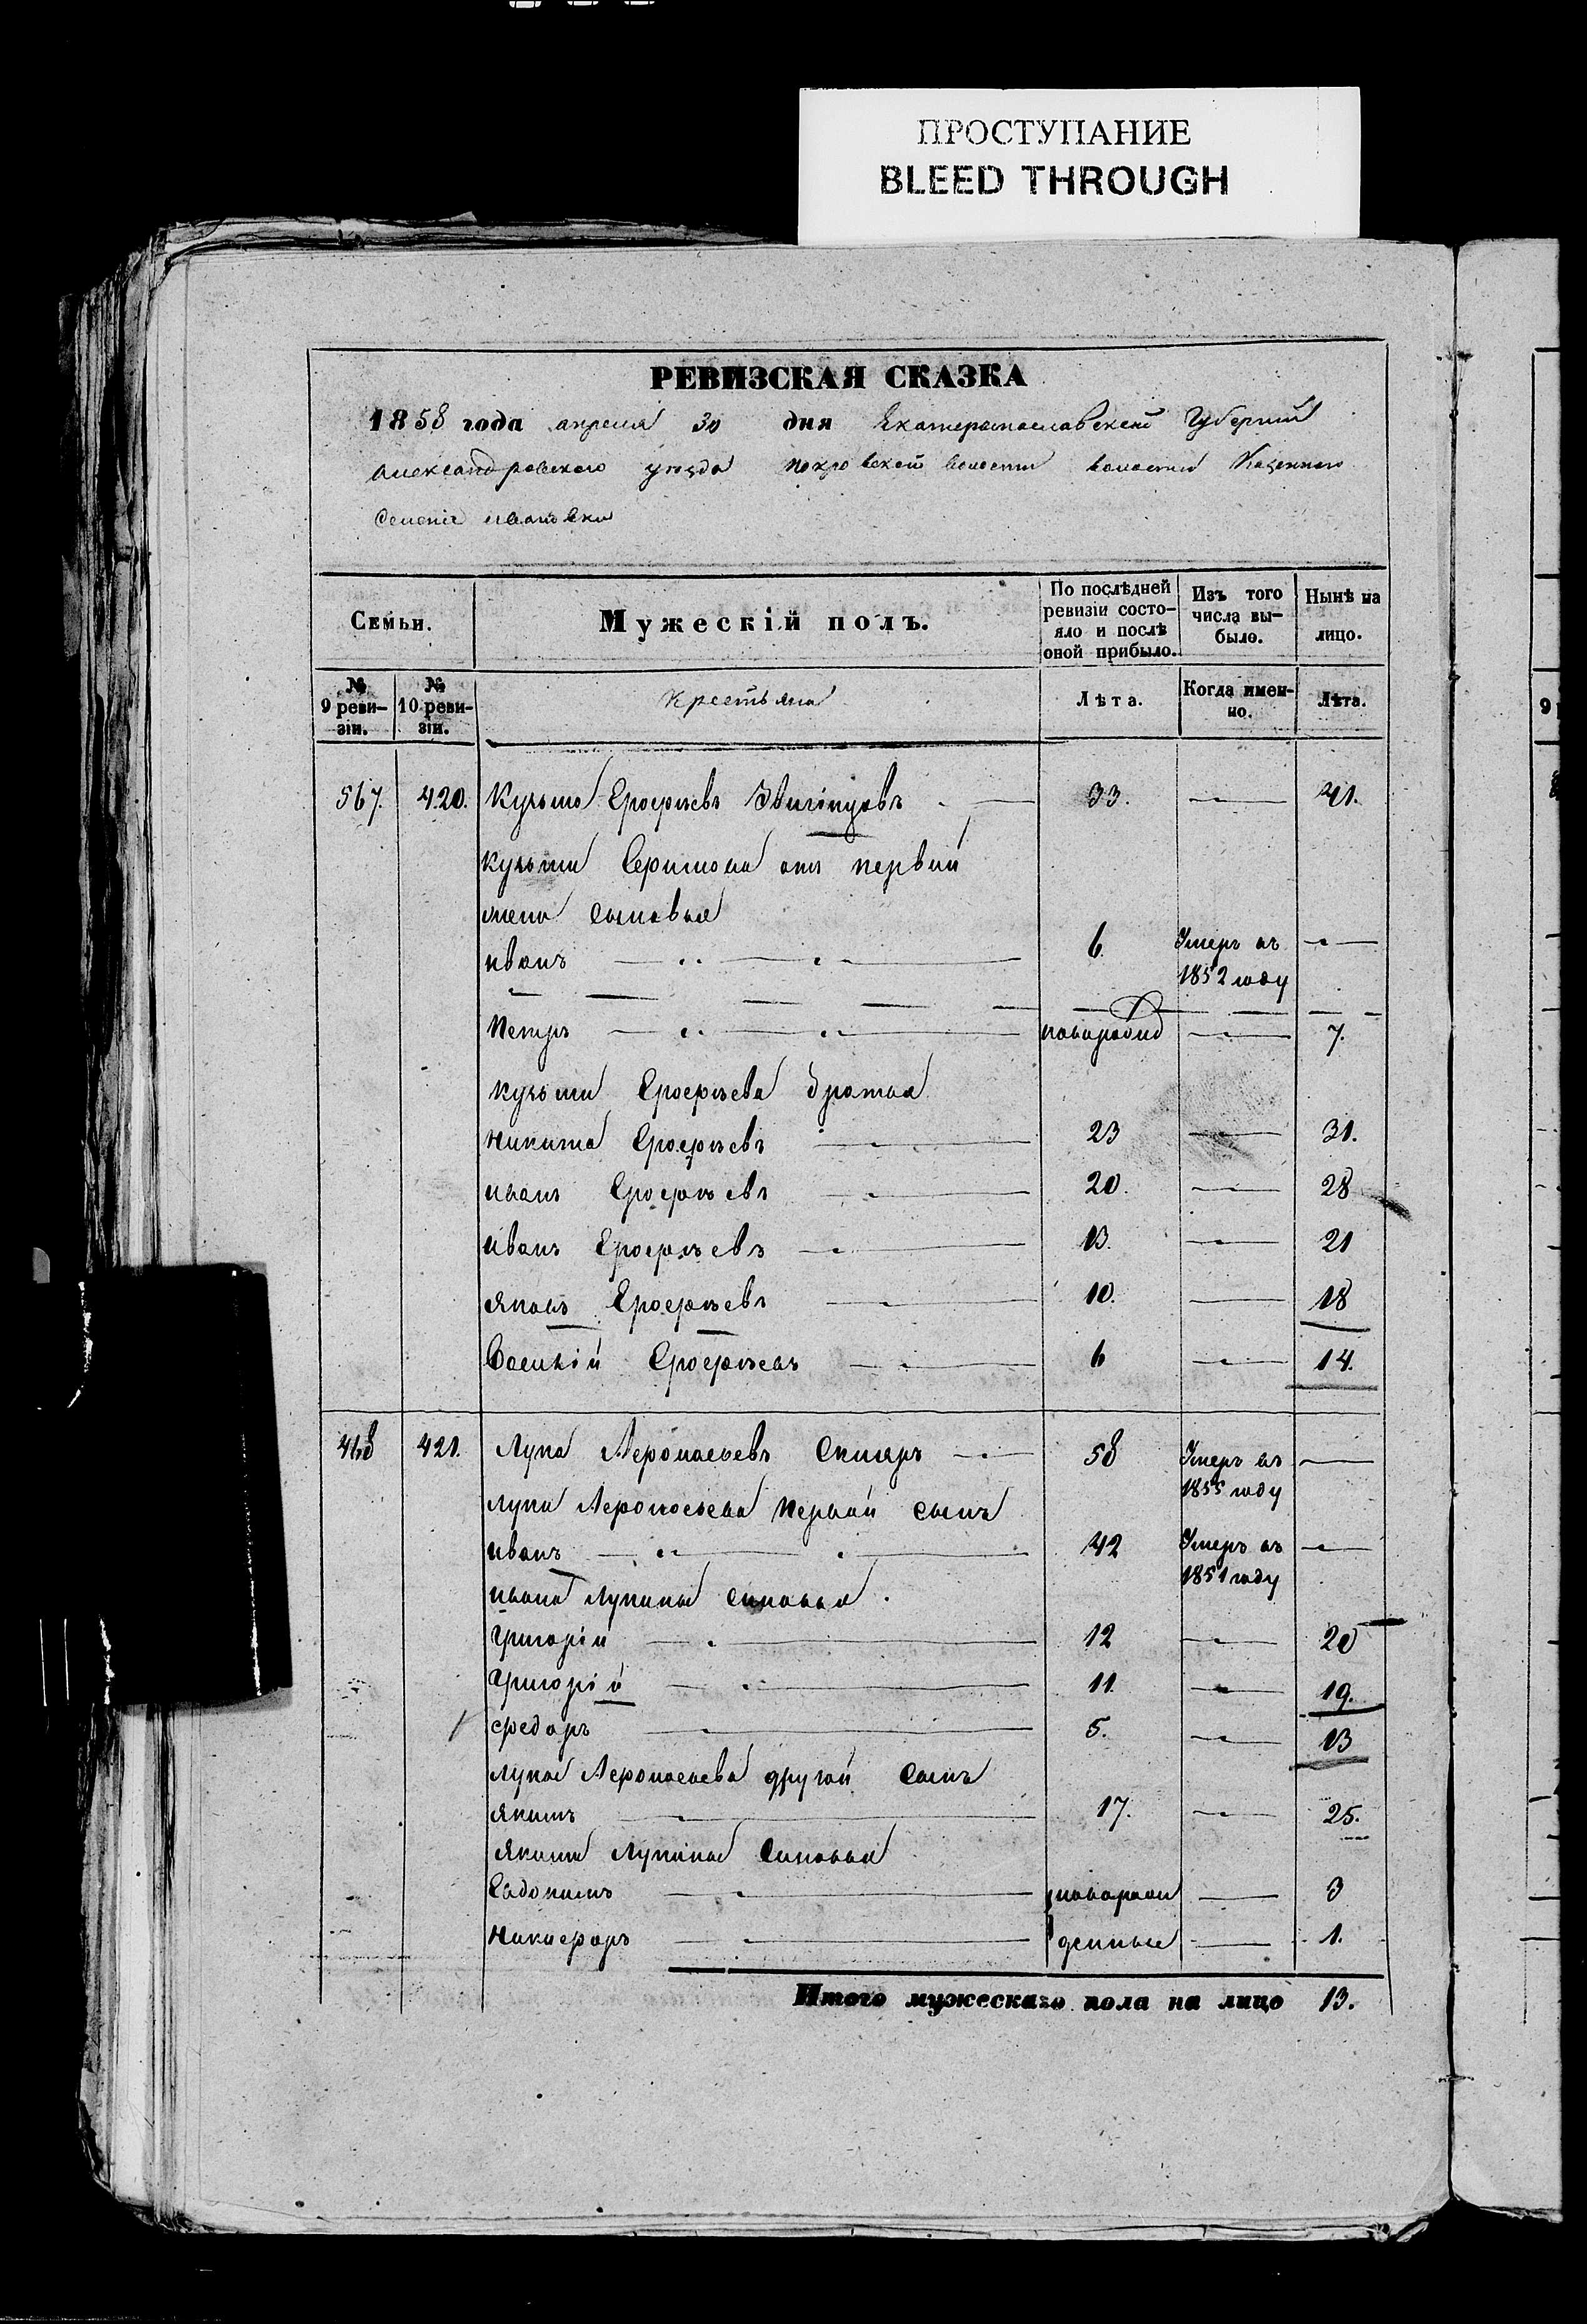 ПРОСТУПАНИЕ
BLEED THROUGH
РЕВИЗСКАЯ СКАЗКА
1858 года апреля 30 дня Екатеринославской Губернии
Александровского уезда покровской волости волости Казенного
Селения ивановки
Семьи.
Мужескій полъ.
По послѣдней ревизіи состояло и послѣ оной прибыло.
Изъ того числа выбыло.
Нынѣ на лицо.
№ 9 ревизіи.
№ 10 ревизіи.
Крестьяна
Лѣта.
Когда именно.
Лѣта.
567. 420. Кузьма Ерофѣевъ 33. 41.
кузьми от первой
жены сыновья
иванъ 6. Умеръ въ
1852 году
Петръ новорожд 7.
кузьми Ерофѣева братья
никита Ерофѣевъ 23 31.
иванъ Ерофѣевъ 20. 28
иванъ Ерофѣевъ 13. 21
яковъ Ерофѣевъ 10. 18
Василій Ерофѣевъ 6 14.
468 421. Лупа Афонасьевъ Скляръ 58 Умеръ въ
1855 году
лупи Афоносьева первой сынъ
иванъ 42 Умеръ въ
1851 году
ивана лупина сыновья.
Григорій 12 20
Григорій 11. 19.
федоръ 5. 13
лупи Афонасьева другой сынъ
якимъ 17. 25.
якима лупина сыновья
Евдокимъ новорож 3
Никифоръ денные 1.
Итого мужескаго пола на лицо 13.
9